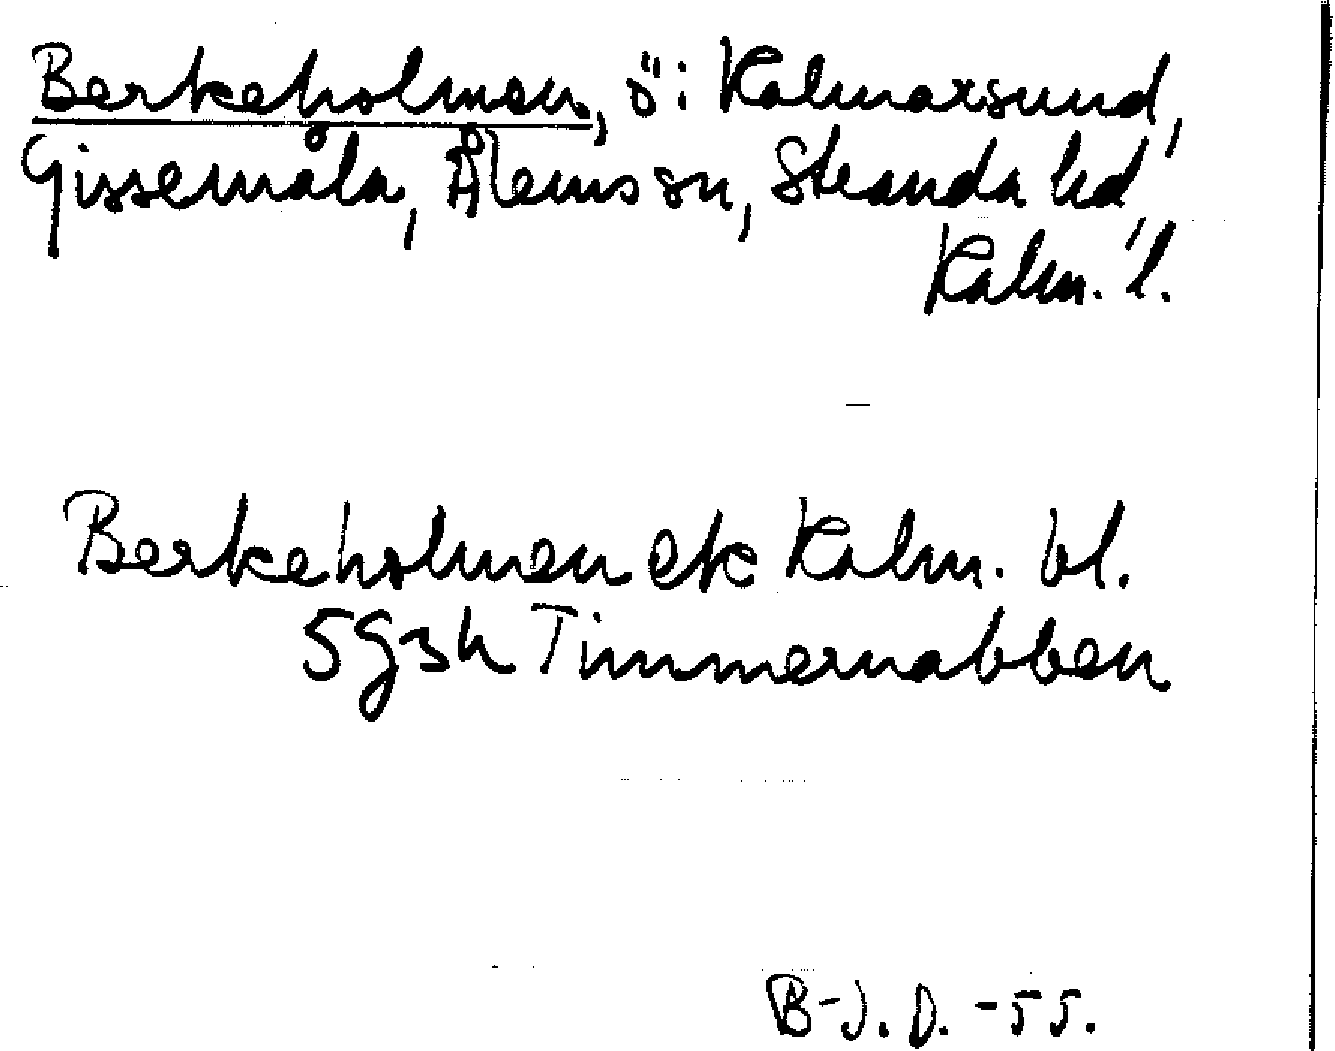 Berkeholmen, ö i Kalmarsund,
Gissemåla, Ålems sn, Stranda hd,
Kalm. l.
Berkeholmen ek Kalm. bl.
5g3h Timmernabben
B-J. D. -55.